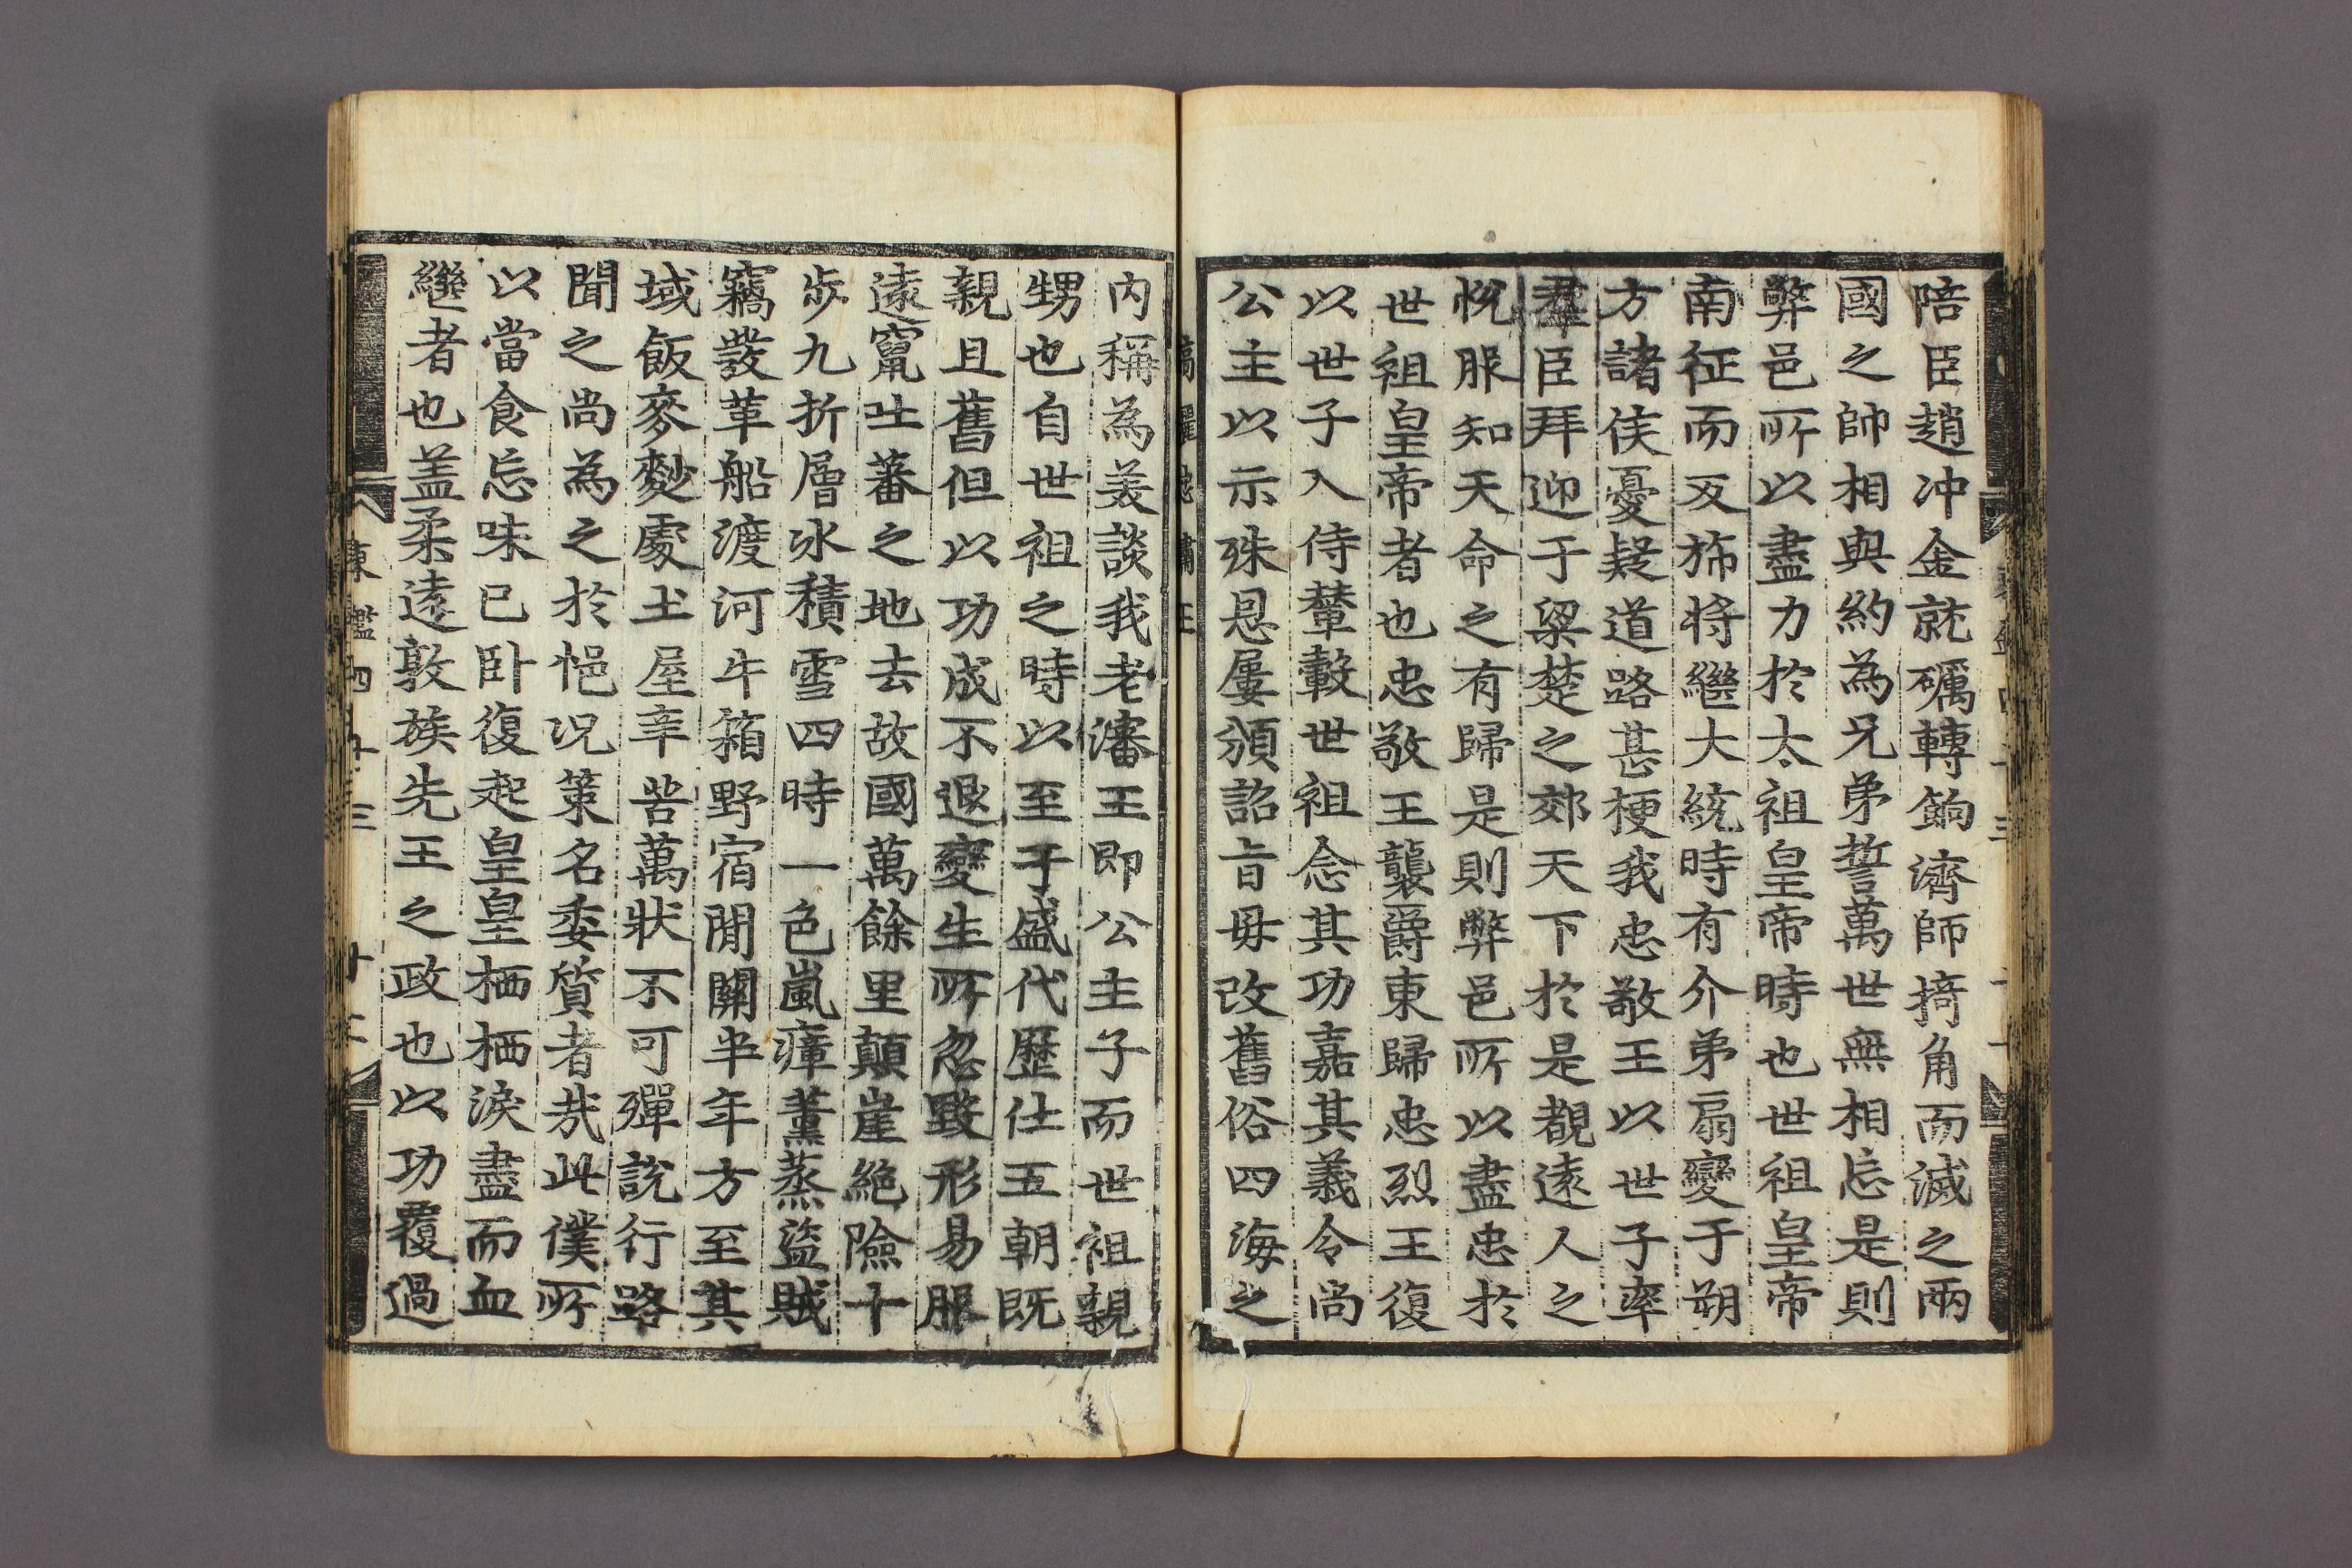 陪臣趙冲金就礪轉餉濟師掎角而滅之兩
國之帥相與約為兄弟誓萬世無相忘是則
弊邑所以盡力於太祖皇帝時也世祖皇帝
南征而反斾將繼大統時有介弟扇變于朔
方諸侯憂疑道路甚梗我忠敬王以世子率
羣臣拜迎于梁楚之郊天下於是覩遠人之
悅服知天命之有歸是則弊邑所以盡忠於
世祖皇帝者也忠敬王襲爵東歸忠烈王復
以世子入侍輦轂世祖念其功嘉其義令尚
公主以示殊恩屢頒詔旨毋改舊俗四海之
內稱為美談我老瀋王即公主子而世祖親
甥也自世祖之時以至于盛代歷仕五朝既
親且舊但以功成不退變生所忽毀形易服
遠竄吐蕃之地去故國萬餘里顛崖絶險十
步九折層冰積雪四時一色嵐瘴薰蒸盜賊
竊發革船渡河牛箱野宿間關半年方至其
域飯麥麨處土屋辛苦萬狀不可殫說行路
聞之尚為之於悒况策名委質者㢤此僕所
以當食忘味已卧復起皇皇栖栖淚盡而血
繼者也盖柔遠敦族先王之政也以功覆過
東鑑四